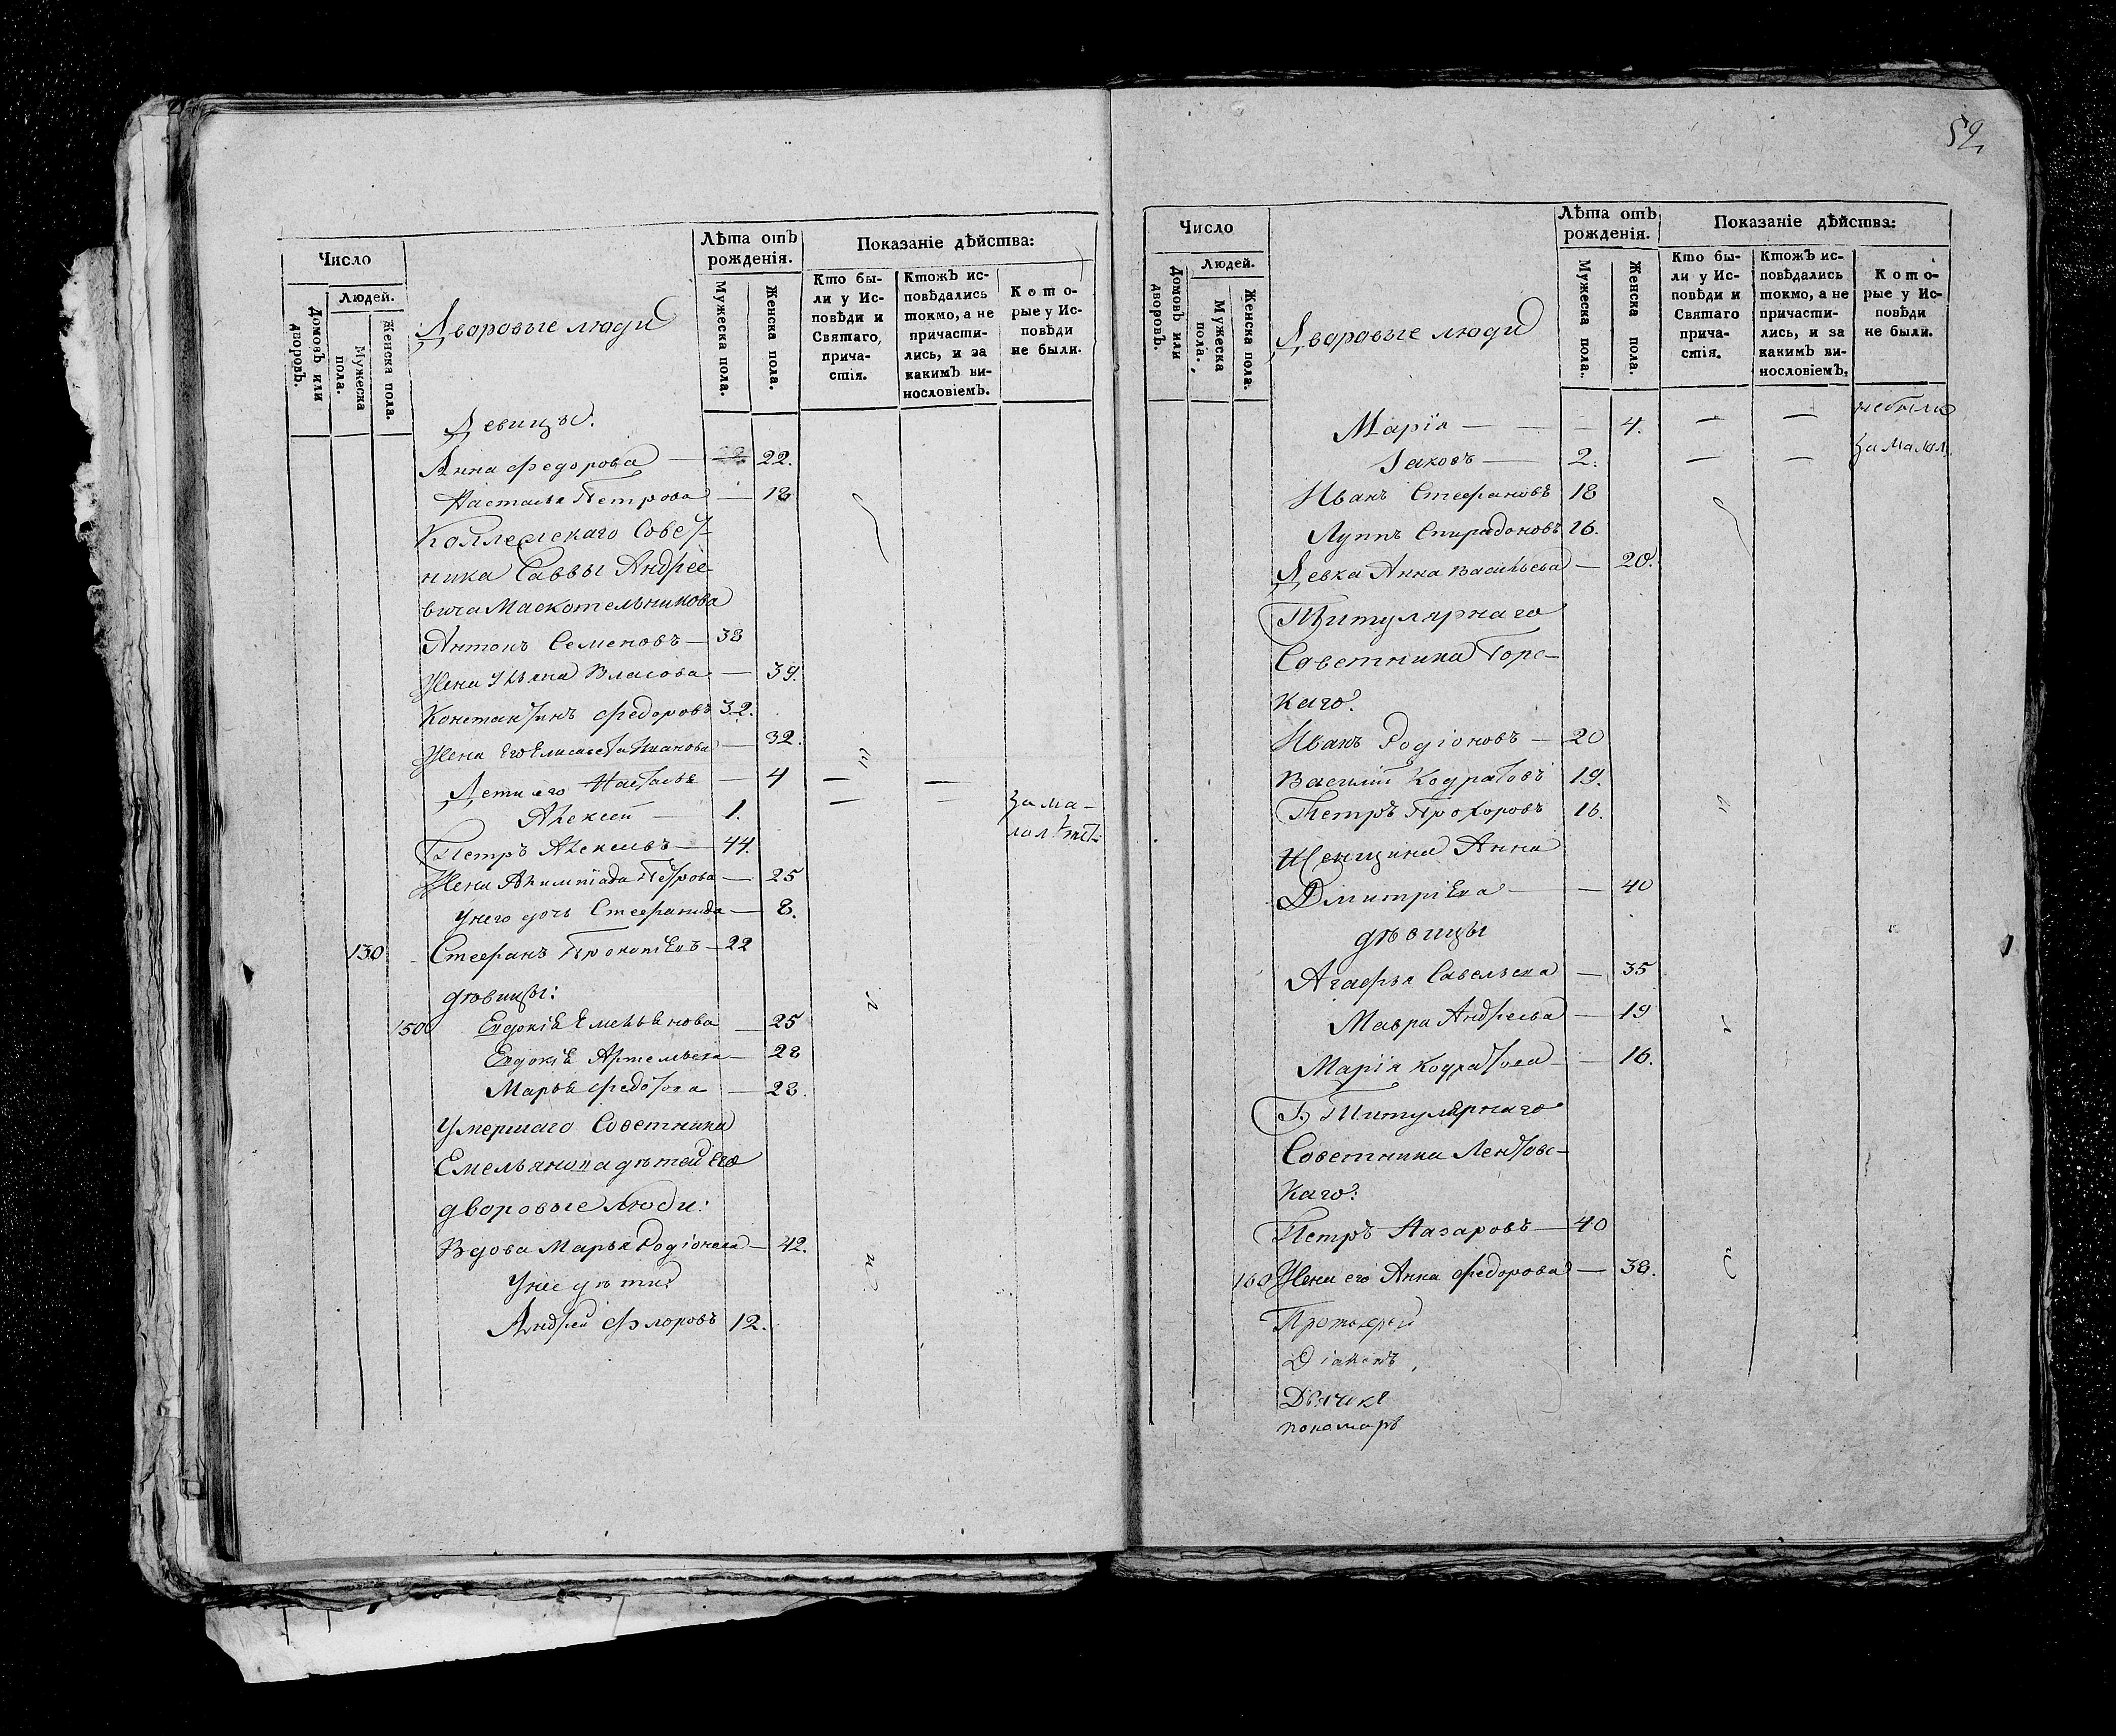 Число
Людей.
Домовъ или дворовъ.
Мужеска пола.
Женска пола.
Дворовые люди
Лѣта отъ рожденія.
Мужеска пола.
Женска пола.
Показаніе дѣйства:
Кто бы-
ли у Ис-
повѣди и
Святаго
прича-
стія.
Ктожъ ис-
повѣдались
токмо, а не
причасти-
лись, и за
какимъ ви-
нословіемъ.
Кото-
рые у Ис-
повѣди
не были.
Девицы.
Анна Федорова — 22.
Настасья Петрова — 18
Коллежскаго Совет-
ника Саввы Андрее-
вича Маскотельникова
Антонъ Семеновъ — 38
Жена Власова — 39.
Константинъ Федоровъ 32.
Жена Его Елисавета Иванова — 32.
Дети его Настасья — 4 — —
Алексей — 1. — — За ма-
лолѣтст:
Петръ Алексеевъ — 44.
Жена Петрова — 25
У него дочь Стефанида — 8.
130 Стефанъ Прокопіевъ — 22
дѣвицы:
150 Евдокія Емельянова — 25
Евдокія Артемьева — 28
Марья Федотова — 28.
Умершаго Советника
Емельянова дѣтей Его
дворовые люди:
Вдова Марья Родіонова — 42.
У нее дѣти
Андрей Флоровъ 12.
52
Число
Людей.
Домовъ или дворовъ.
Мужеска пола.
Женска пола.
Дворовые люди
Лѣта отъ рожденія.
Мужеска пола.
Женска пола.
Показаніе дѣйства:
Кто бы-
ли у Ис-
повѣди и
Святаго
прича-
стія.
Ктожъ ис-
повѣдались
токмо, а не
причасти-
лись, и за
какимъ ви-
нословіемъ.
Кото-
рые у Ис-
повѣди
не были.
Марія — — — 4. — — небыли
Іаковъ — 2. — — За малол.
Иванъ Стефановъ 18
Луппъ Спиридоновъ 16.
Девка Анна Васильева — 20.
Титулярнаго
Советника Горс-
каго.
Иванъ Родіоновъ — 20
Василій Кодратовъ 19.
Петръ Прохоровъ 16.
Женщина Анна
Димитріева — — 40
дѣвицы
Агафья Савельева — 35
Мавра Андреева — 19
Марія Кодратова — 16.
Г. Титулярнаго
Советника Лентовс-
каго:
Петръ Назаровъ — 40
160 Жена его Анна Федорова — 38.
Протоіерей
Діаконъ,
Дьячекъ
пономарь